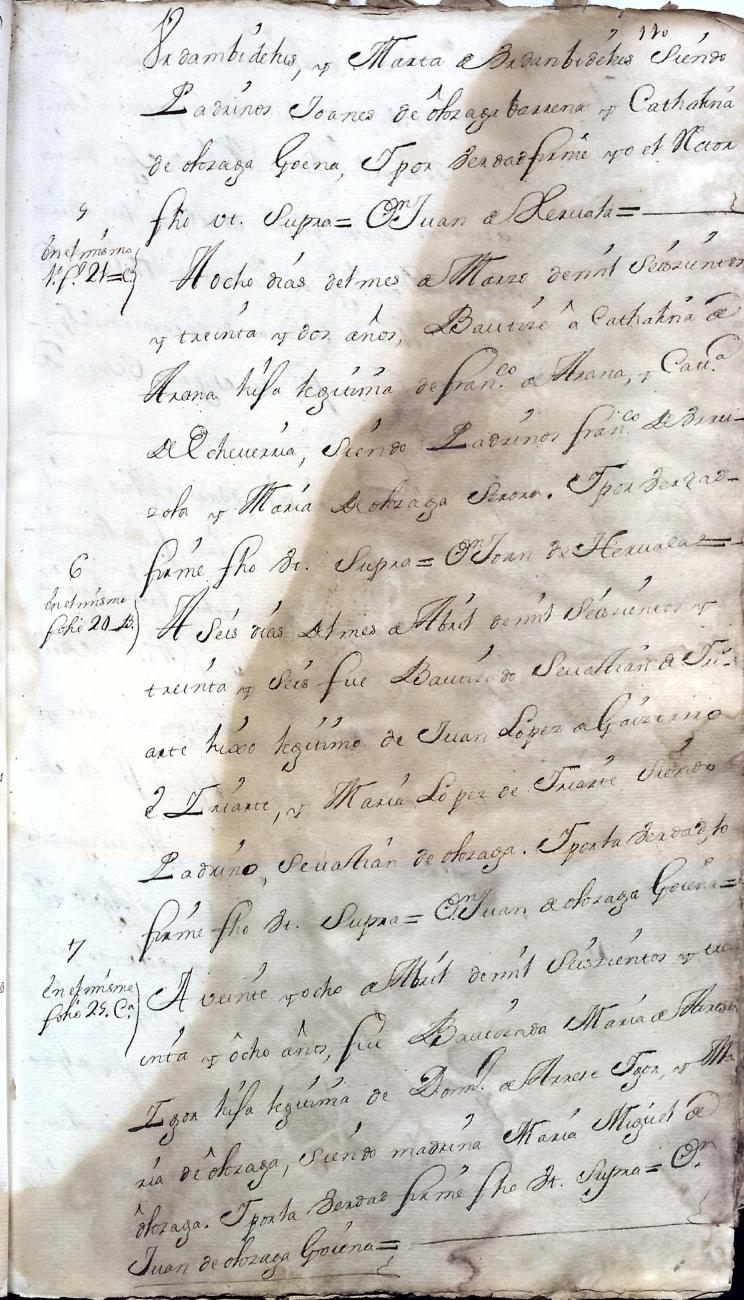 110
Vrdambidehis, y Maria de Vrdanbidehis Siendo
Padrinos Joanes de olozaga barrena y Cathalina
de olozaga Goena, Y por Verdad firmé yo el Retor
fho vt. Supra= Dn. Juan de Heruata=
5
En el mismo
1º. fº. 21=C.
A ocho dias del mes de Marzo de mil Seiscientos
y treinta y dos años, Bautize a Cathalina de
Arana hija legitima de franco. de Arana, y Cata.
de Echeuerria, Siendo Padrinos franco. de
zola y Maria de olozaga Serora. Y por Verdad
firmé fho Vt. Supra= Dn. Joan de Herualas=
6
En el mismo
folio 20 B.
A Seis dias del mes de Abril de mil Seiscientos y
treinta y Seis fue Bautizado Seuastian de Iri-
arte hixo legitimo de Juan Lopez de Gaizerino
de Iriarte, y Maria Lopez de Iriarte Siendo
Padrino, Seuastian de olozaga. Y por la Verdad lo
firmé fho Vt. Supra= Dn. Juan de olozaga Goiena=
7
En el mismo
folio 25. Ca.
A veinte y ocho de Abril de mil Seiscientos y tre-
inta y ocho años, fue Bautizada Maria de Arrese
Igor hija legitima de Domi. de Arrese Igor, y Ma
ria de olozaga, Siendo madrina Maria Miguel de
olozaga. Y por la Verdad firmé fho Vt. Supra= Dn.
Juan de olozaga Goiena=